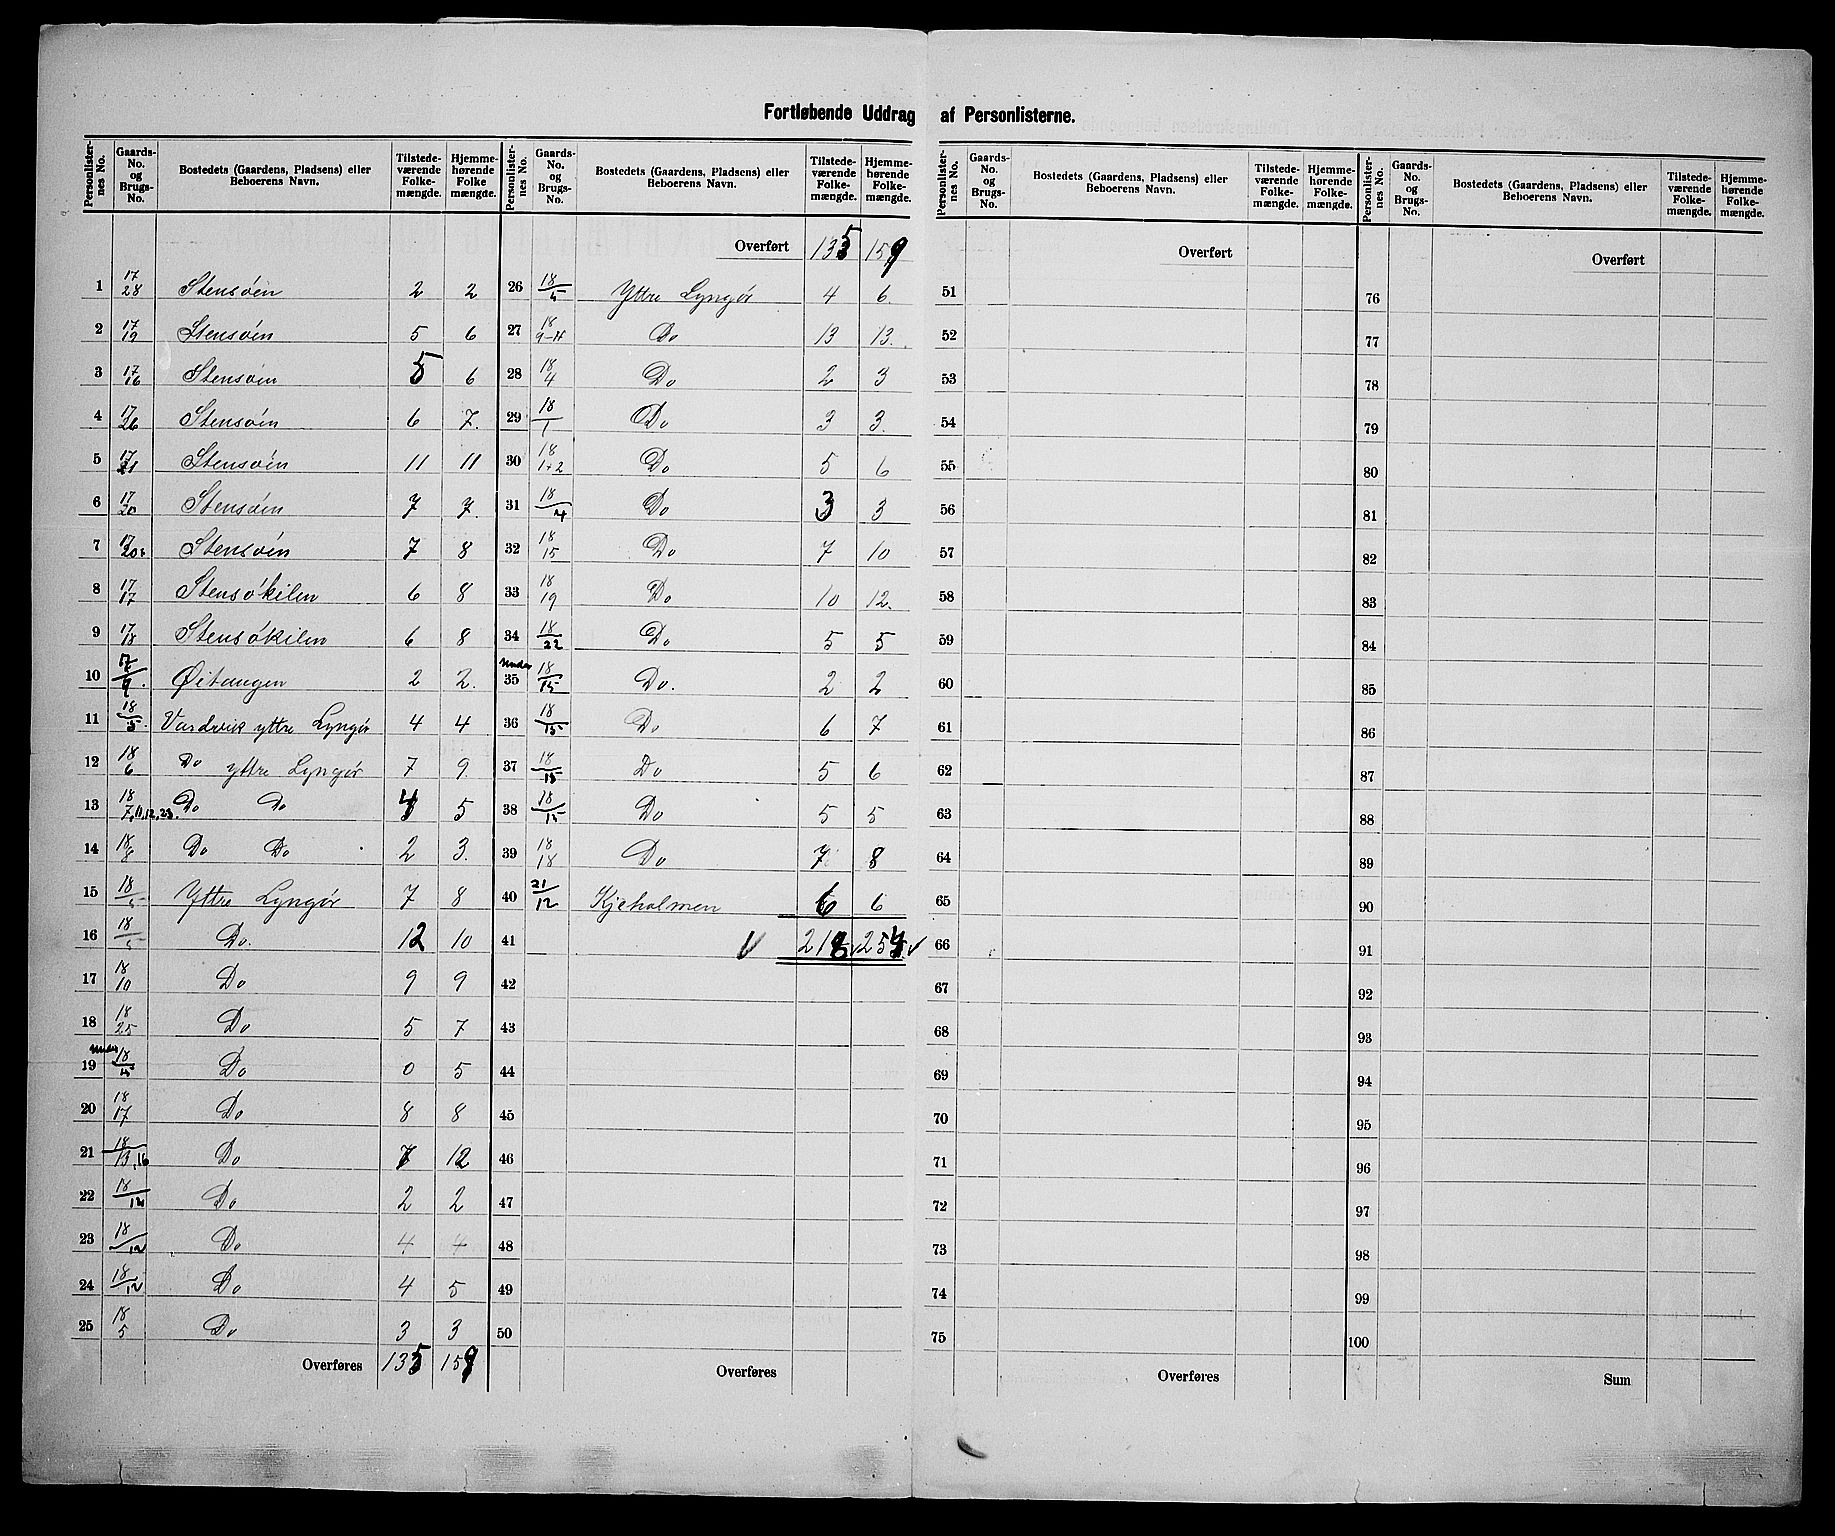 Fortløbende Uddrag af Personlisterne.
Personlister-nes No. | Gaards-No. og Brugs-No. | Bostedets (Gaardens, Pladsens) eller Beboerens Navn. | Tilstede-værende Folke-mængde. | Hjemme-hørende Folke mængde.
1 17/28 Stensøen 2 2
2 17/19 Stensøen 5 6
3 17/16 Stensøen 5 6
4 17/26 Stensøen 6 7.
5 17/21 Stensøen 11 11
6 17/20 Stensøen 7 7.
7 17/20 Stensøen 7 8
8 17/17 Stensøkilen 6 8
9 17/18 Stensøkilen 6 8
10 17/9. Øitangen 2 2.
11 18/5. Vardevik yttre Lyngør 4 4
12 18/6 Do yttre Lyngør 7 9.
13 18/7, 11, 12, 23. Do Do 4 5
14 18/8 Do Do 2 3.
15 18/5 Yttre Lyngør 7 8
16 18/5 Do. 12 10
17 18/10 Do 9 9
18 18/25 Do 5 7
19 under 18/15 Do 0 5
20 18/17 Do 8 8
21 18/13, 16 Do 7 12
22 18/12 Do 2 2
23 18/12 Do 4 4
24 18/12 Do 4 5
25 18/5 Do 3 3
Overføres 135 159
Personlister-nes No. | Gaards-No. og Brugs-No. | Bostedets (Gaardens, Pladsens) eller Beboerens Navn. | Tilstede-værende Folke-mængde. | Hjemme-hørende Folke-mængde.
Overført 135 159
26 18/5 Yttre Lyngør 4 6.
27 18/9-11 Do 13 13.
28 18/4 Do 2 3
29 18/1 Do 3 3.
30 18/1+2 Do 5 6
31 18/14 Do 3 3
32 18/15 Do 7 10
33 18/19 Do 10 12.
34 18/22 Do 5 5
35 under 18/15 Do. 2 2
36 18/15 Do 6 7
37 18/15 Do 5 6
38 18/15 Do 5 5
39 18/18 Do 7 8
40 21/12 Kjeholmen 6 6
41 218 254
42
43
44
45
46
47
48
49
50
Overføres
Personlister-nes No. | Gaards-No. og Brugs-No. | Bostedets (Gaardens, Pladsens) eller Beboerens Navn. | Tilstede-værende Folke-mængde. | Hjemme-hørende Folke-mængde.
Overført
51
52
53
54
55
56
57
58
59
60
61
62
63
64
65
66
67
68
69
70
71
72
73
74
75
Overføres
Personlister-nes No. | Gaards-No. og Brugs-No. | Bostedets (Gaardens, Pladsens) eller Beboerens Navn. | Tilstede-værende Folke-mængde. | Hjemme-hørende Folke-mængde.
Overført
76
77
78
79
80
81
82
83
84
85
86
87
88
89
90
91
92
93
94
95
96
97
98
99
100
Sum